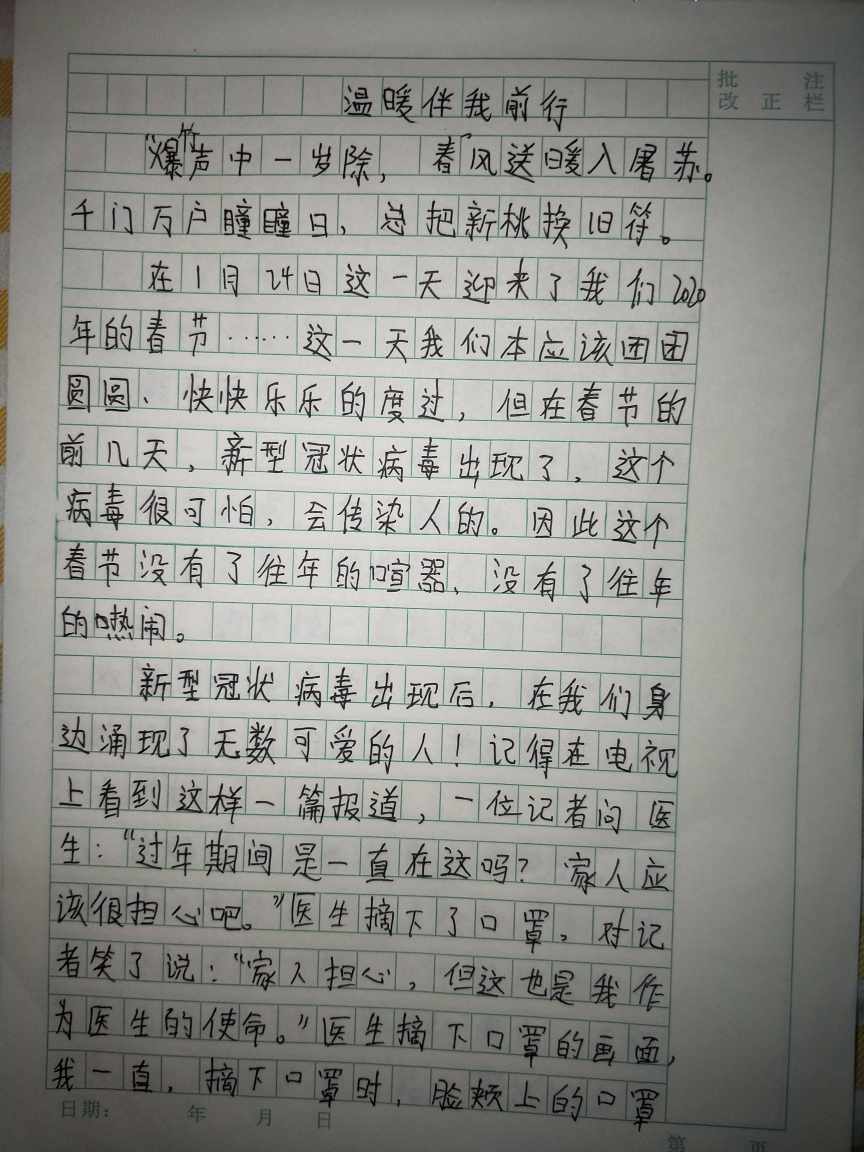 批 注
改 正 栏
温暖伴我前行
“爆竹声中一岁除，春风送暖入屠苏。
千门万户瞳瞳日，总把新桃换旧符。
在1月24日这一天迎来了我们2020
年的春节……这一天我们本应该团团
圆圆、快快乐乐的度过，但在春节的
前几天，新型冠状病毒出现了，这个
病毒很可怕，会传染人的。因此这个
春节没有了往年的喧器、没有了往年
的嘫闹。
新型冠状病毒出现后，在我们身
边涌现了无数可爱的人！记得在电视
上看到这样一篇报道，一位记者问医
生：“过年期间是一直在这吗？家人应
该很担心吧。”医生摘下了口罩，对记
者笑了说：“家人担心，但这也是我作
为医生的使命。”医生摘下口罩的画面，
我一直，摘下口罩时，脸颊上的口罩
日期： 年 月 日
第 页